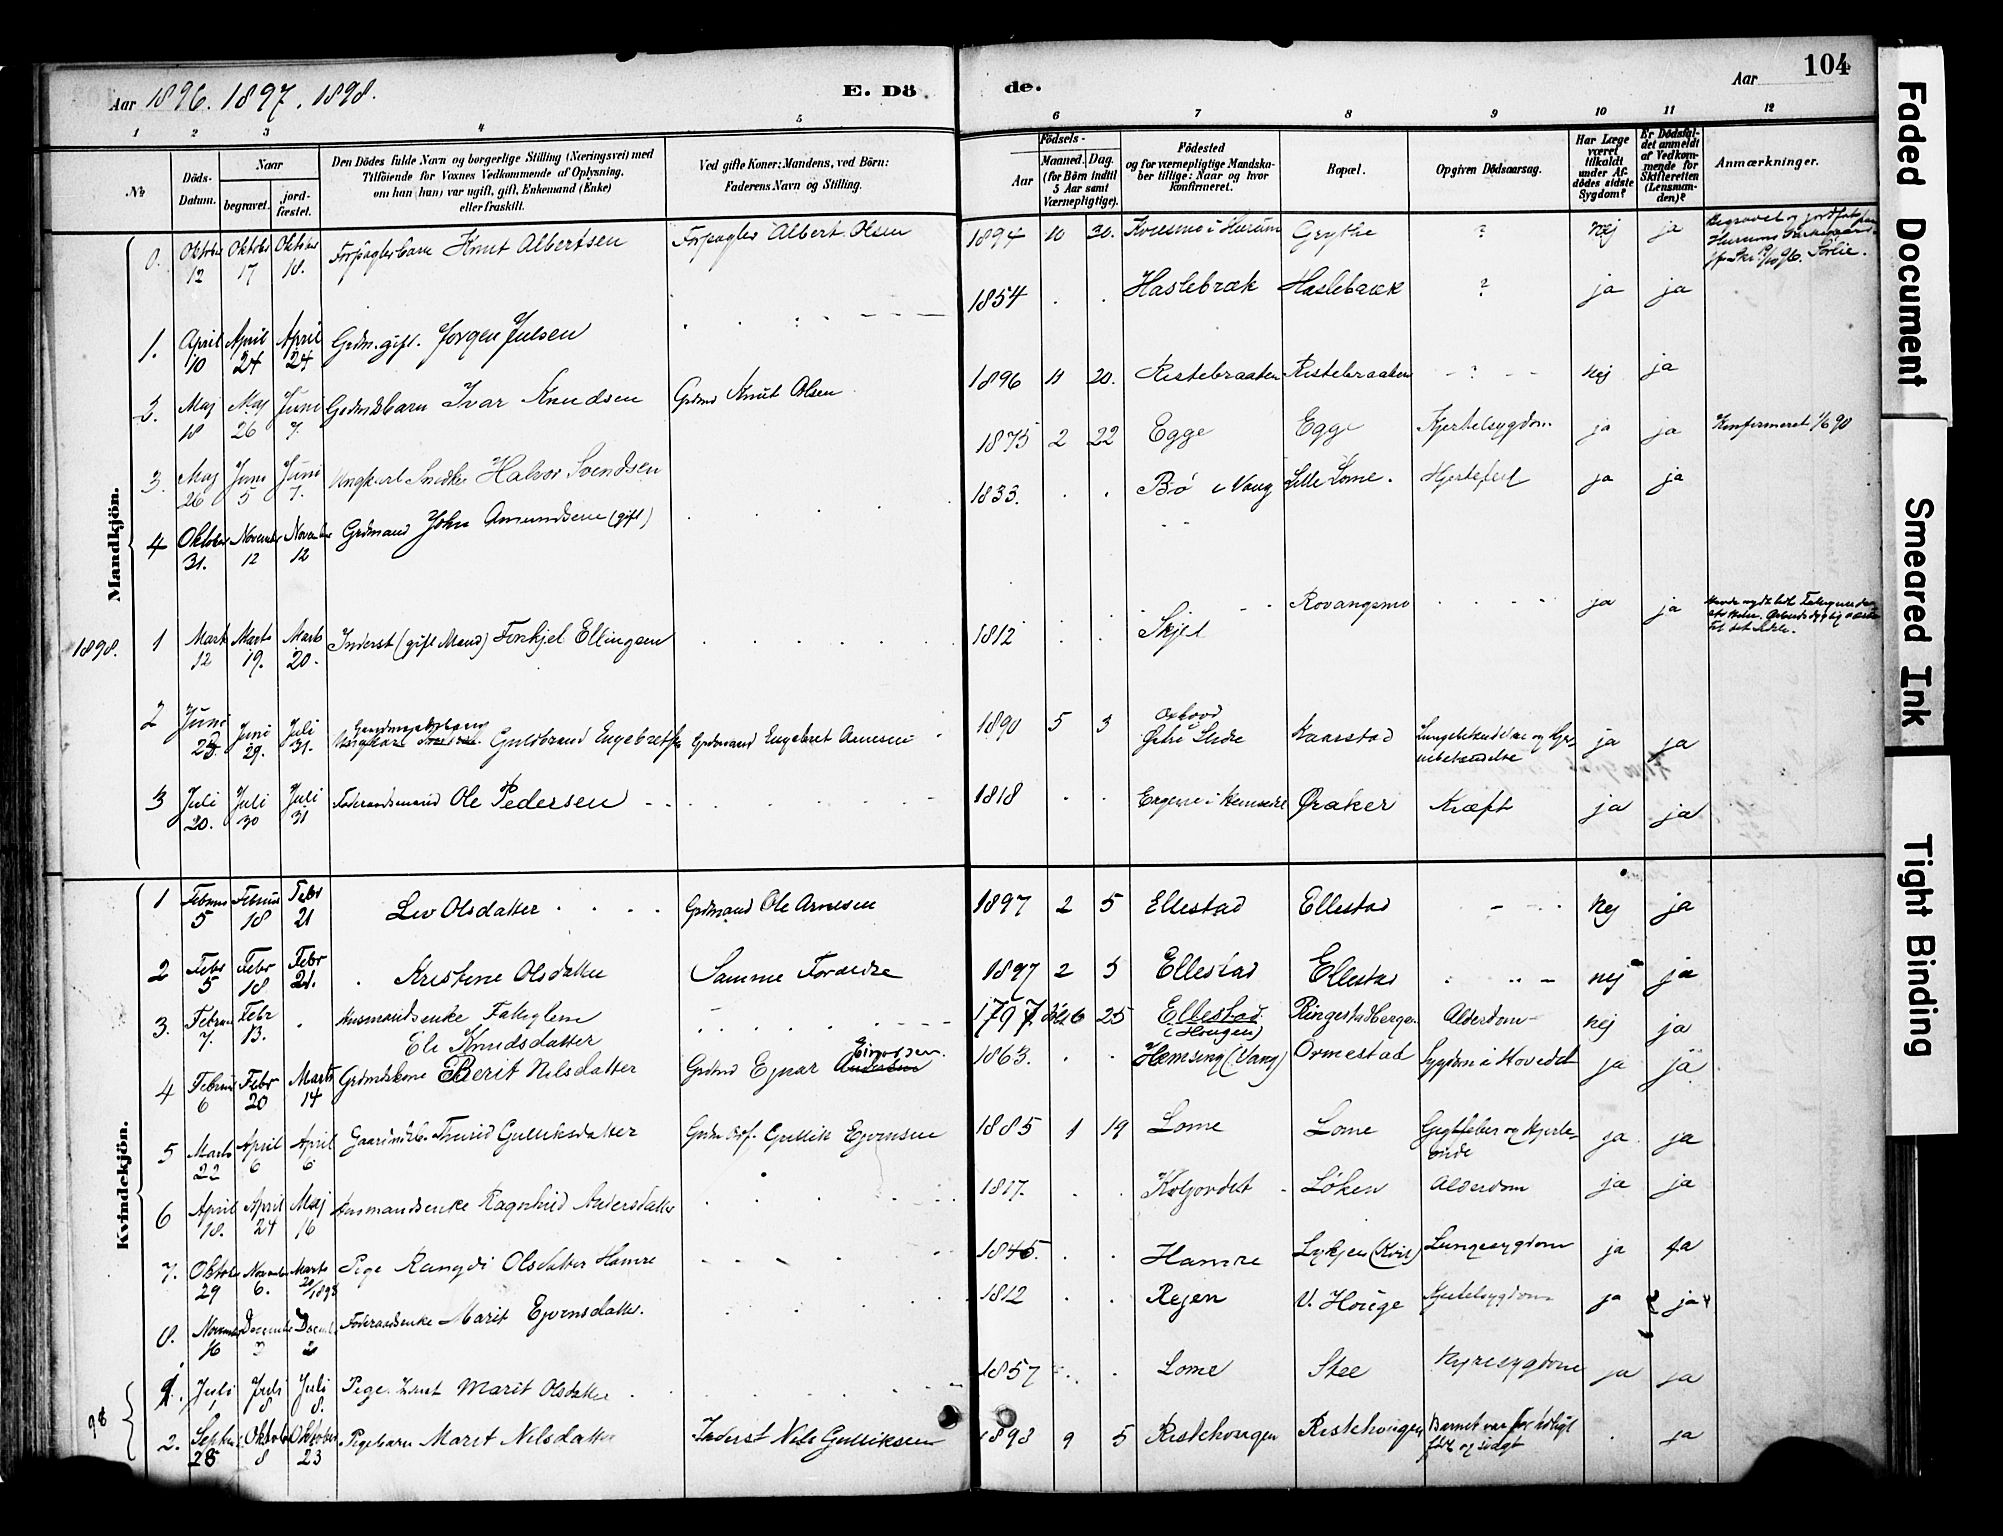 Aar 1896. 1897. 1898.
E. Dö
de.
Aar 104
1 2 3 4 5 6 7 8 9 10 11 12
No
Döds-
Datum.
Naar
begravet.
jord-
fæstet.
Den Dödes fulde Navn og borgerlige Stilling (Næringsvei) med
Tilföiende for Voxnes Vedkommende af Oplysning,
om han (hun) var ugift, gift, Enkemand (Enke)
eller fraskilt.
Ved gifte Koner: Mandens, ved Börn:
Faderens Navn og Stilling.
Födsels-
Aar
Maaned. Dag.
(for Börn indtil
5 Aar samt
Værnepligtige).
Födested
og for værnepligtige Mandska-
ber tillige: Naar og hvor
konfirmeret.
Bopæl.
Opgiven Dödsaarsag.
Har Læge
været
tilkaldt
under Af-
dödes sidste
Sygdom?
Er Dödsfal-
det anmeldt
af Vedkom-
mende for
Skifteretten
(Lensman-
den)?
Anmærkninger.
Mandkjön.
Oktober 12 Oktober 17 Oktober 18. Forpagterbarn Knut Albertsen Forpagter Albert Olsen 1894 10 30. i Hurum Grythe ? Nej ja
Begravet og
Sørlie.
1. April 10 April 24 April 24 Grdm. gift. Jørgen Julsen 1854 Haslebræk Haslebræk ? ja ja
2. Maj 18 Maj 26 Juni 7. Grdmdsbarn Ivar Knudsen Grdmd Knut Olsen 1896 11 20. Ristebraaten Ristebraaten ? nej ja
3. Maj 26 Juni 5 Juni 7. Ungkarl Snedker Halvor Svendsen 1875 2 22 Egge Egge Kjertelsygdom ja ja Konfirmeret 90
4 Oktober 31. November 12 November 12 Grdmand John Amundsen (gift) 1833. Bø i Vang Lille Lome. Hjertefeil ja ja
1898.
1 Marts 12 Marts 19. Marts 20. Inderst (gift Mand) Torkjel Ellingsen 1812 Skjel Rovangsmo ja ja
2 Juni 23. Juni 29. Juli 31. Guldbrand Engebretsen Grdmand Engebret Arnesen 1890 5 3
Østre Slidre Kaarstad Lungebetændelse og Hjer-
nebetændelse ja ja
3 Juli 20. Juli 30 Juli 31 Føderaadsmand Ole Pedersen 1818 i Hemsedal Øraker Kræft ja ja
Kvindekjön.
1 Februar 5 Februar 18 Febr 21 Liv Olsdatter Grdmand Ole Arnesen 1897 2 5 Ellestad Ellestad Nej ja
2 Febr 5 Febr 18 Febr 21. Kristine Olsdatter Samme Forældre 1897 2 5 Ellestad Ellestad nej ja
3. Februar 7. Febr 13. Husmandsenke Fattiglem
Eli Knudsdatter 1797 6 25 Ellestad
(Hougen) Ringestadbergen Alderdom nej ja
4 Februar 6 Febr 20 Marts 14 Grdmdskone Berit Nilsdatter Grdmd Ejnar Andersen Einarsen. 1863. Hemsing (Vang) Ormestad Sygdom i Hovedet ja ja
5 Marts 22 April 6 April 6 Thurid Gulliksdatter Gullik Ejvensen 1885 1 19 Lome Lome Gigtfeber og Hjerte-
onde ja ja
6 April 18. April 24 Maj 16 Husmandsenke Ragnhild Andersdatter 1817. Løken Alderdom ja ja
7. Oktober 29 November 6. Marts 20/1898 Pige Rangdi Olsdatter Hamre 1845. Hamre Lykjen Lungesygdom ja ja
8. November 16 December December 2 Føderaadsenke Marit Ejvensdatter. 1812 Rejen V. Houge Kjertelsygdom ja ja
98
1. Juli 1 Juli 8 Juli 8. Pige Marit Olsdatter 1857 Lome Stee Nyresygdom ja ja
2. Septbr 28 Oktober 8 Oktober 23 Pigebarn Marit Nilsdatter Inderst Nils Gulliksen 1898 9 5 Ristehougen Ristehougen Barnet var for tidligt
født og svagt ja
Faded Document
Smeared Ink
Tight Binding